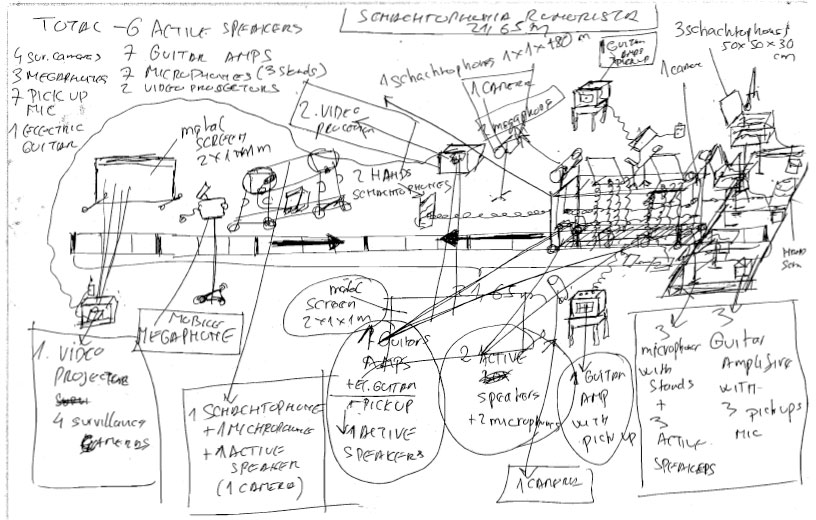 TOTAL - 6 ACTIVE SPEAKERS
4 SUR. CAMERAS 7 GUITAR AMPS
3 MEGAPHONES 7 MICROPHONES (3 stands)
7 PICK UP MIC 2 VIDEO PROJECTORS
1 ELECTRIC GUITAR
SCHACHTOPHONIA
21,65 m
1 schachtophone 1x1x180 m
1 CAMERA
1 GUITAR AMPS
PICKUP
3 schachtophones
50x50x30 cm
1 camera
2. VIDEO
MEGAPHONE
metal
SCREEN
2x1x1m
2 HANDS
SCHACHTOPHONES
21,65 m
metal
SCREEN
2x1x1m
MOBILE
MEGAPHONE
1. VIDEO
PROJECTOR
4 survillance
CAMERAS
1 SCHACHTOPHONE
+ 1 MICROPHONE
+ 1 ACTIVE
SPEAKER
(1 CAMERA)
1 Guitars
AMPS
+ EL. GUITAR
1 PICKUP
1 ACTIVE
SPEAKERS
2 ACTIVE
speakers
+ 2 microphones
1 GUITAR
AMP
with
pickup
1 CAMERA
3
microphones
with
stands
+
3
ACTIVE
SPEAKERS
3
Guitar
Amplifire
WITH
3 pickups
MIC